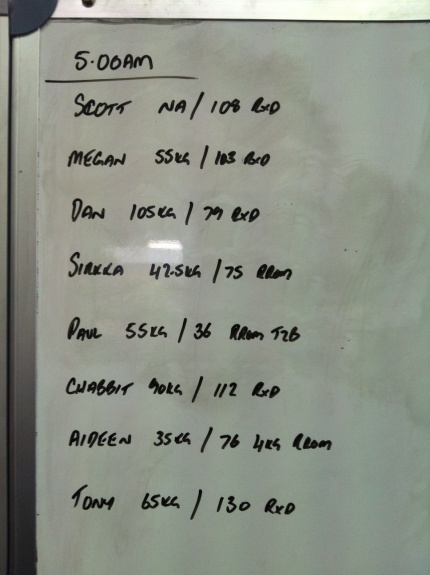 5.00AM
SCOTT NA / 108 RxD
MEGAN 55KG / 103 RxD
DAN 105KG / 79 RxD
SIRKKA 42.5KG / 75 RROM
PAUL 55KG / 36 RROM T2B
CHABBIT 90KG / 112 RxD
AIDEEN 35KG / 76 4KG RROM
TONY 65KG / 130 RxD